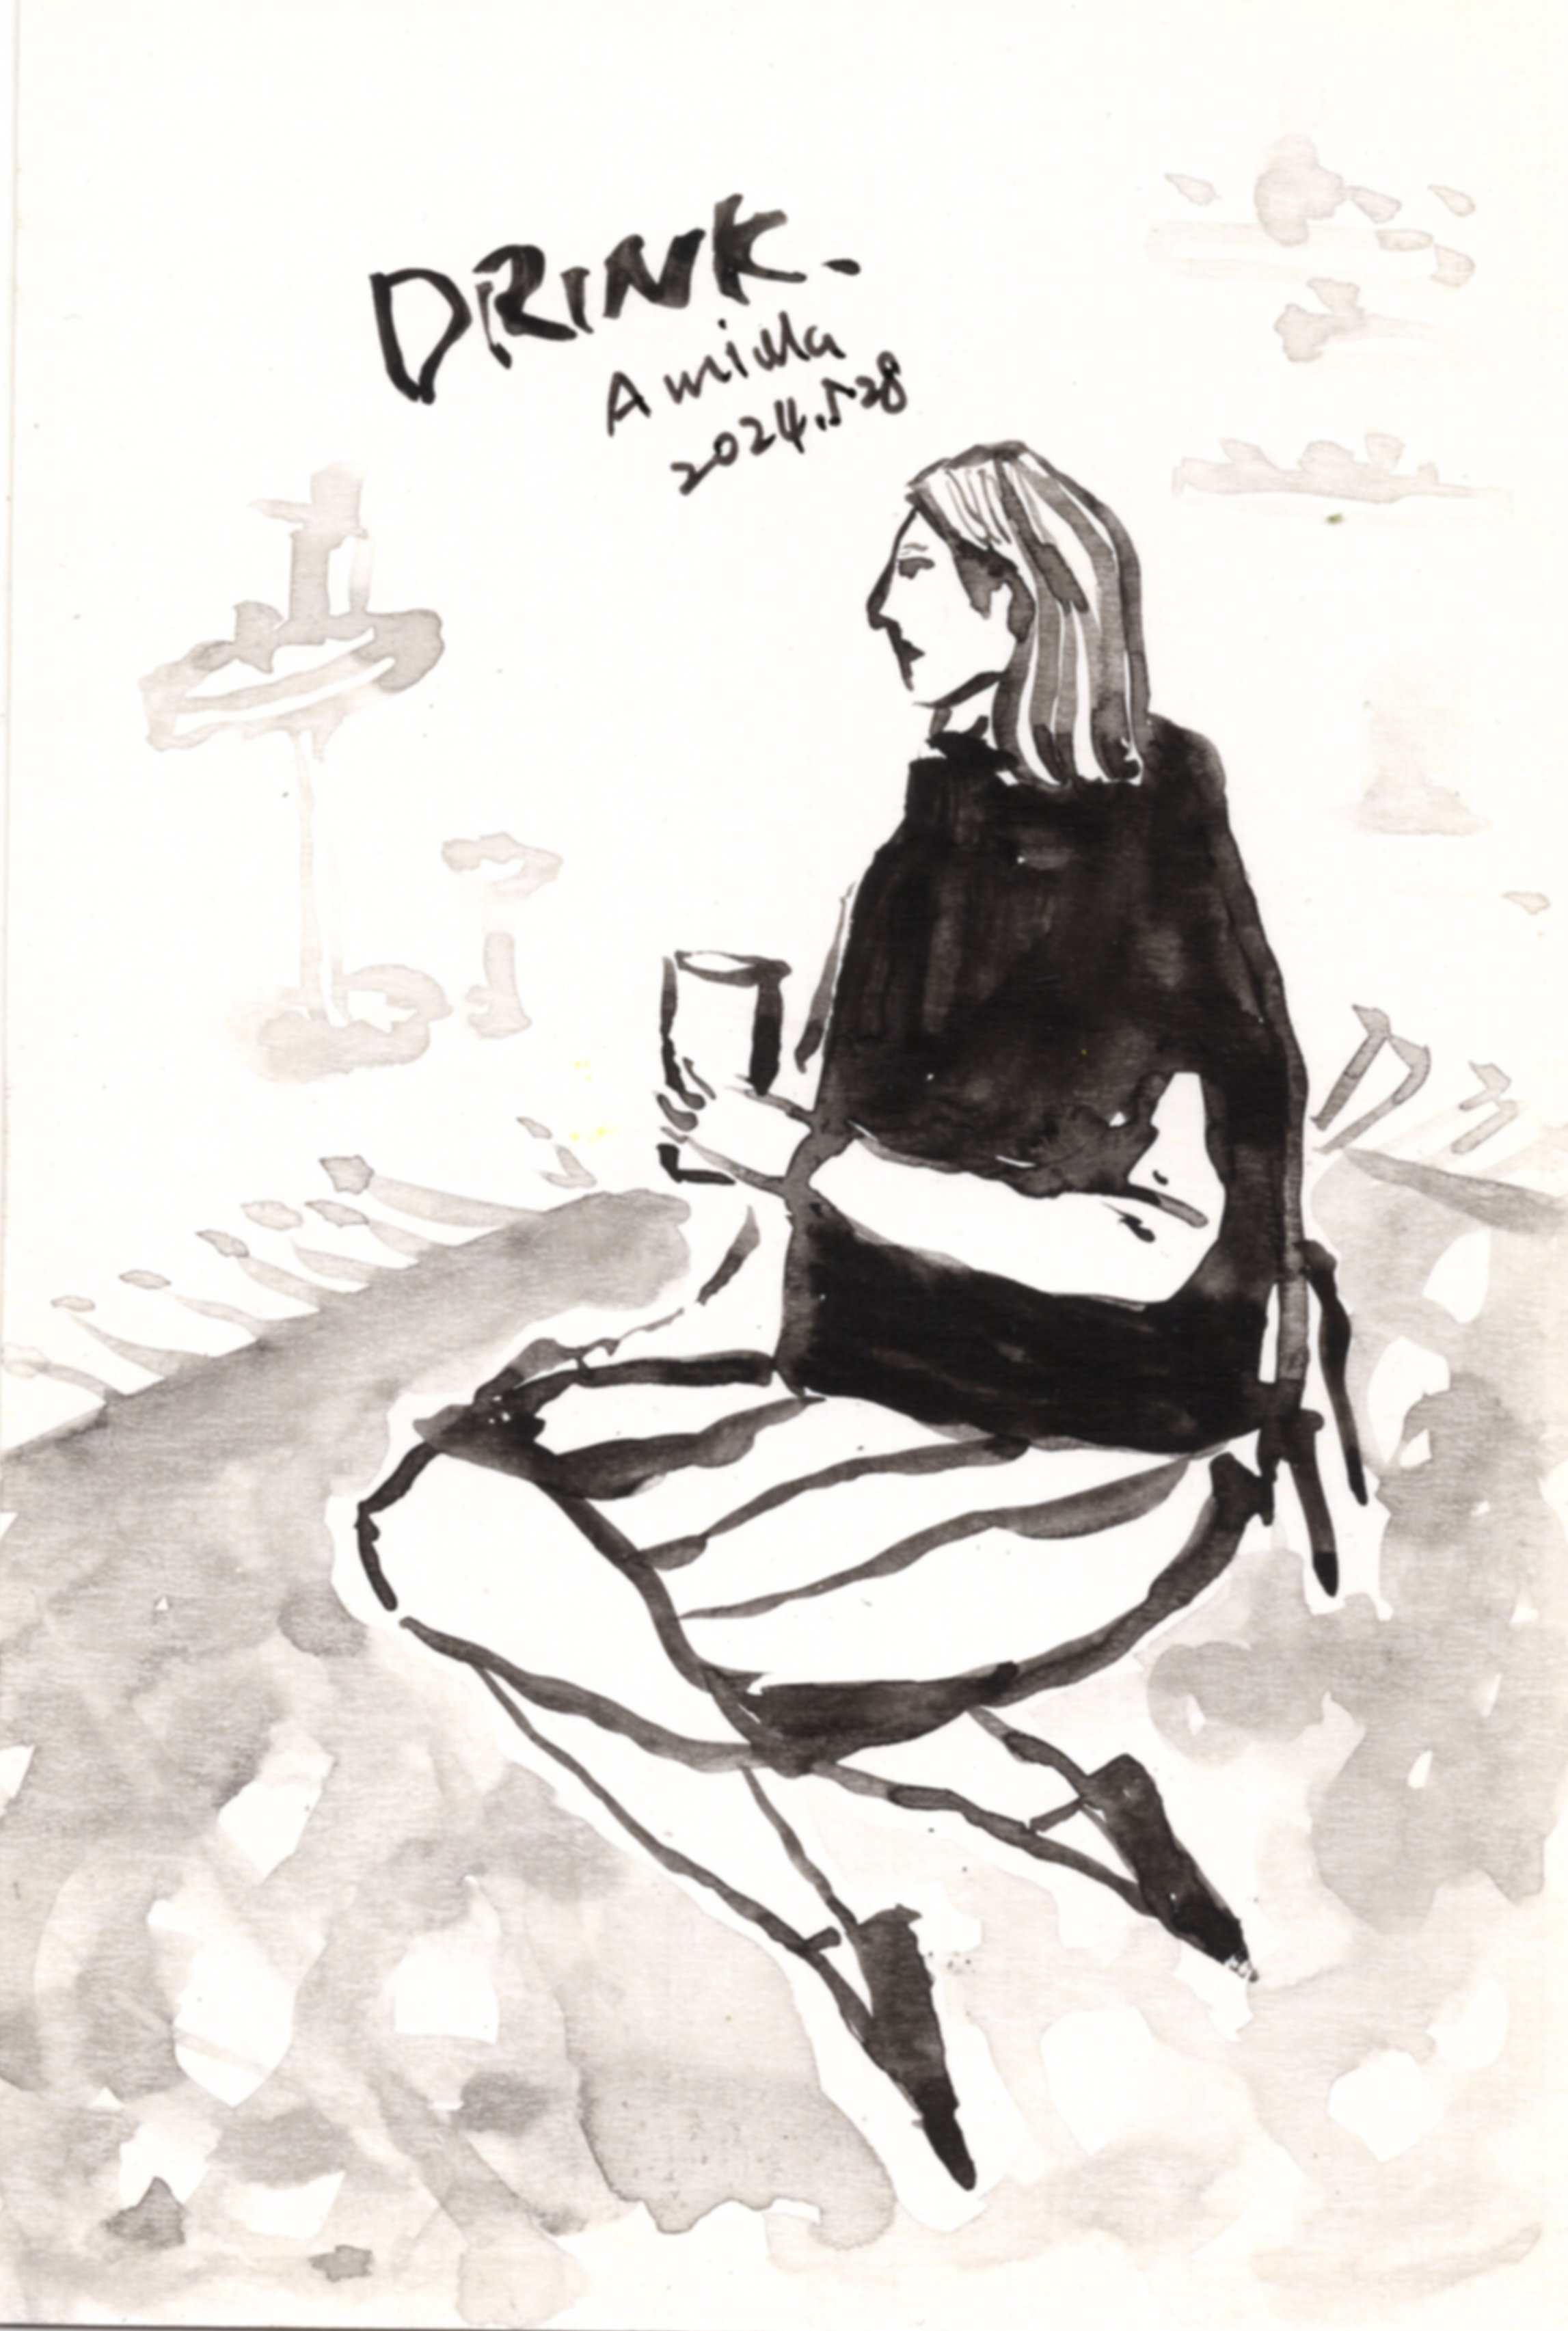 DRINK.
AmiMa
2024.5.28